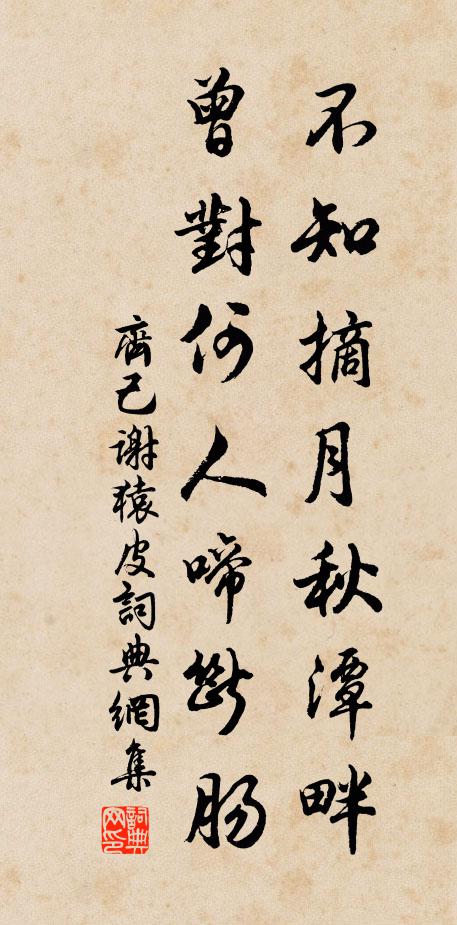 不知摘月秋潭畔
曾對何人啼斷腸
齊己謝猿皮詞典網集
詞典網印